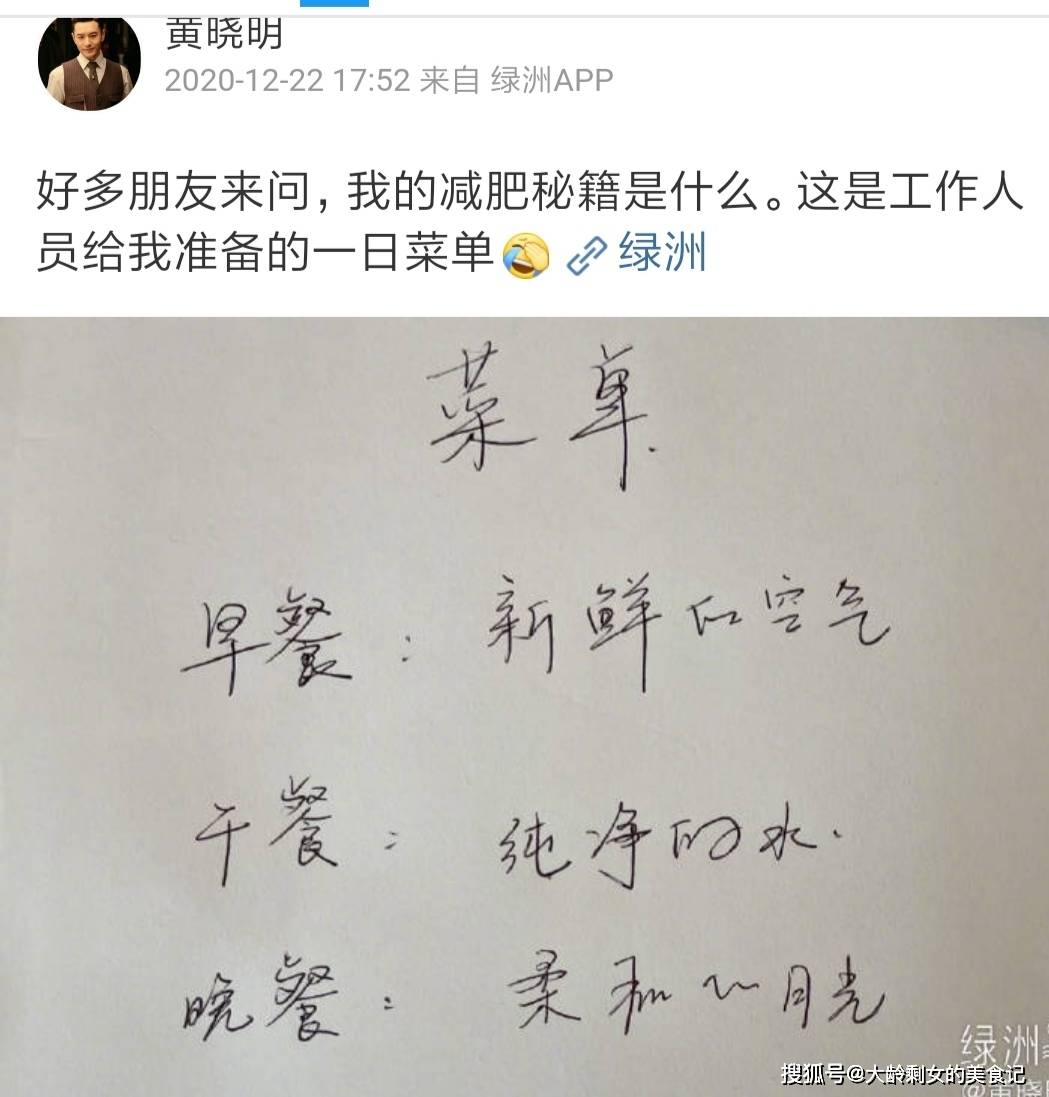 黄晓明
2020-12-22 17:52 来自 绿洲APP
好多朋友来问，我的减肥秘籍是什么。这是工作人
员给我准备的一日菜单🤣 绿洲
菜单.
早餐：新鲜的空气
午餐：纯净的水.
晚餐：柔和的月光
绿洲
搜狐号@大龄剩女的美食记
@黄晓明